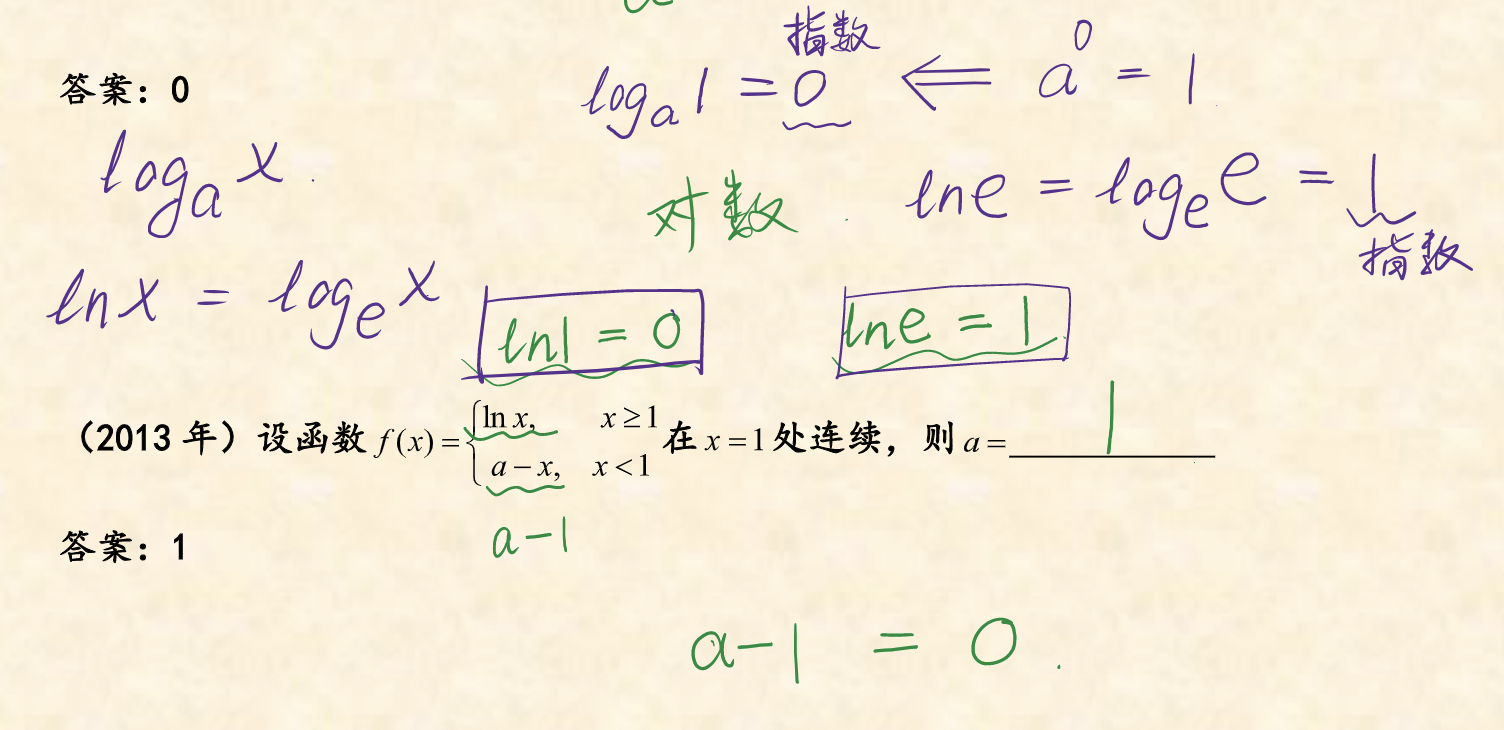 指数
答案：0
logₐ1 = 0 ⟸ a⁰ = 1
logₐx
对数
lne = logₑe = 1
指数
lnx = logₑx
ln1 = 0
lne = 1
（2013 年）设函数 f(x) = { ln x, x ≥ 1
a − x, x < 1 在 x = 1 处连续，则 a = 1
a−1
答案：1
a−1 = 0